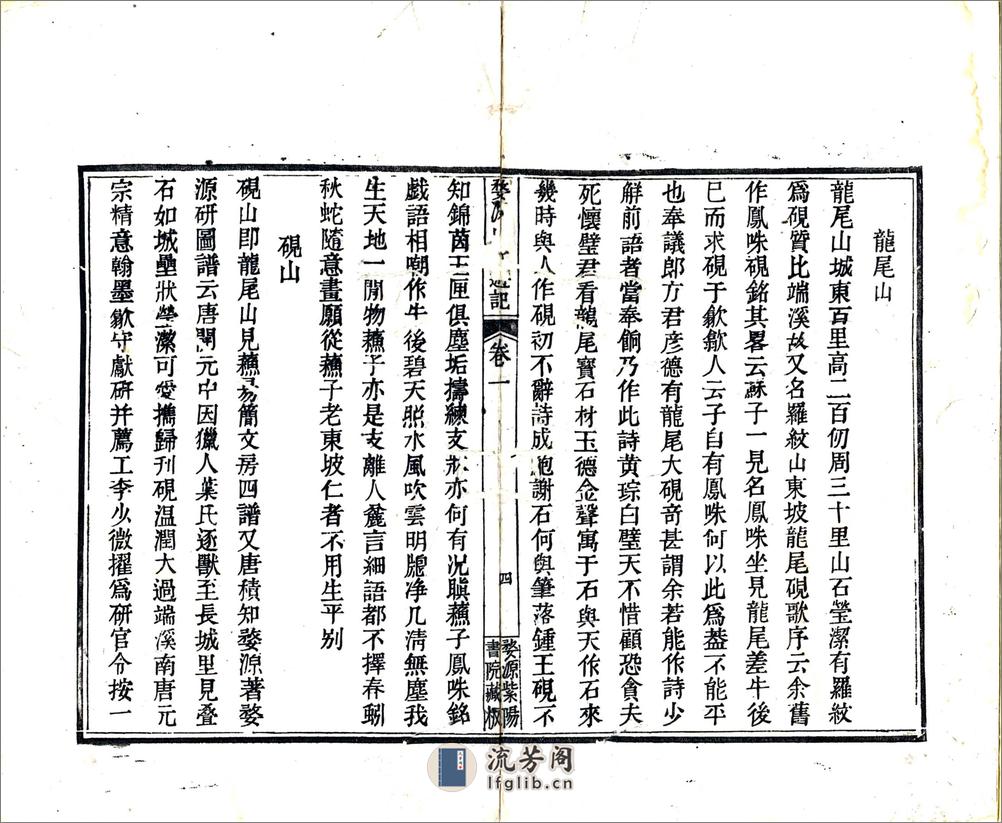 龍尾山
龍尾山城東百里高二百仞周三十里山石瑩潔有羅紋
爲硯質比端溪故又名羅紋山東坡龍尾硯歌序云余舊
作鳳咮硯銘其畧云蘇子一見名鳳咮坐見龍尾羞牛後
已而求硯于歙歙人云子自有鳳咮何以此爲葢不能平
也奉議郎方君彦德有龍尾大硯奇甚謂余若能作詩少
解前語者當奉餉乃作此詩黄琮白璧天不惜顧恐貪夫
死懷璧君看龍尾寶石材玉德金聲寓于石與天作石來
幾時與人作硯初不辭詩成鮑謝石何與筆落鍾王硯不
記
卷一
四
婺源紫陽
書院藏板
知錦茵玉匣俱塵垢擣練支牀亦何有况瞋蘓子鳳咮銘
戲語相嘲作牛後碧天照水風吹雲明牕净几淸無塵我
生天地一閒物蘓子亦是支離人麄言細語都不擇春蚓
秋蛇隨意畫願從蘓子老東坡仁者不用生平别
硯山
硯山卽龍尾山見蘓易簡文房四譜又唐積知婺源著婺
源研圖譜云唐開元中因獵人葉氏逐獸至長城里見疊
石如城壘狀瑩潔可愛攜歸刋硯温潤大過端溪南唐元
宗精意翰墨歙守獻研并薦工李少微擢爲研官令按一
流芳阁
lfglib.cn